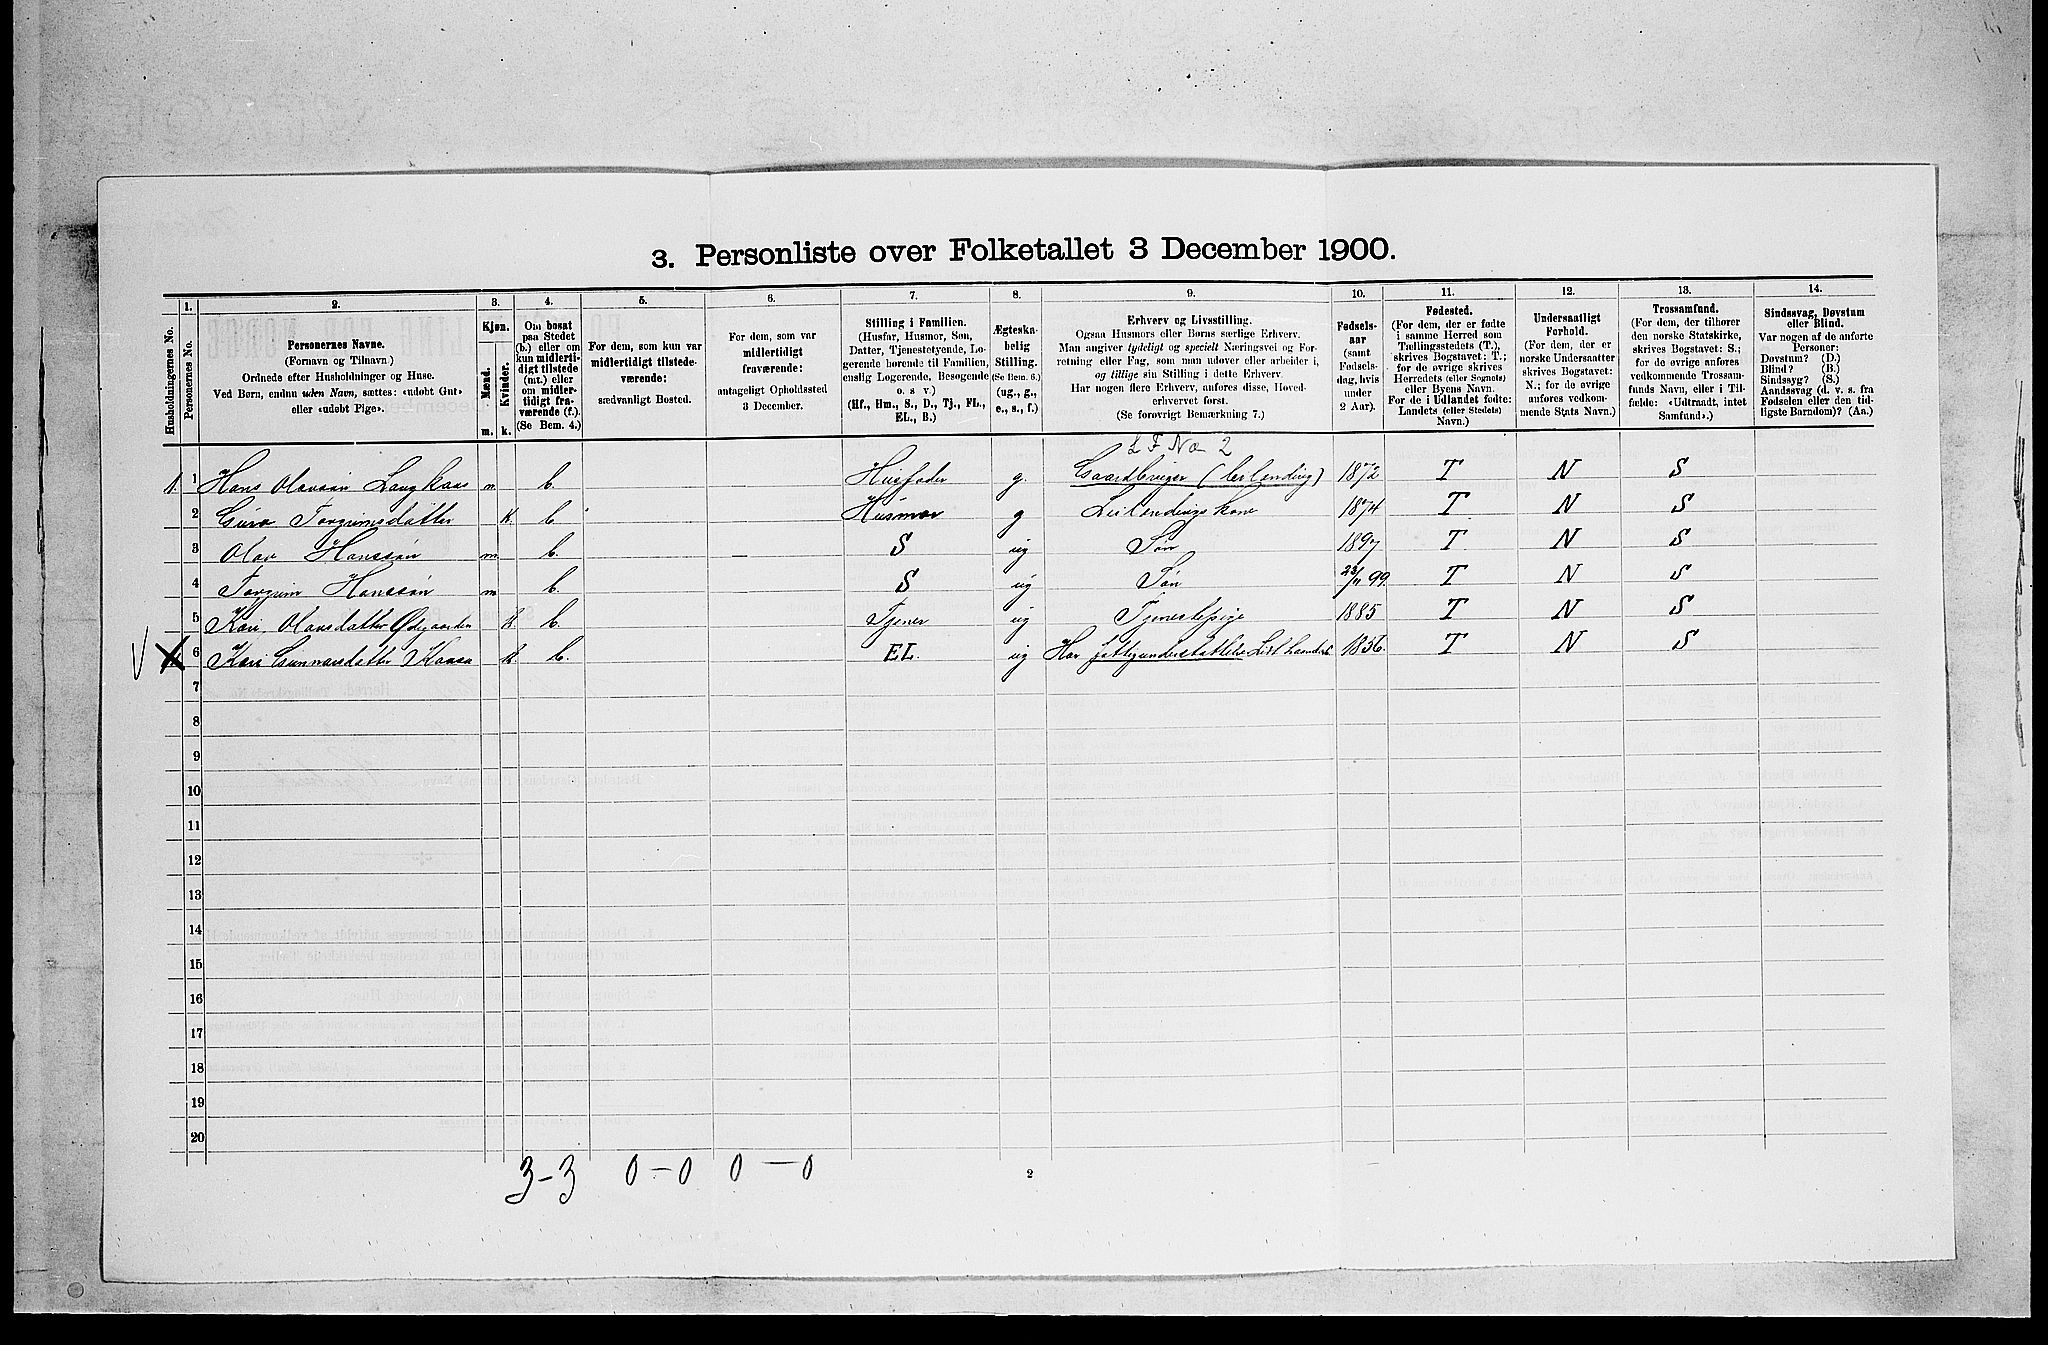 3. Personliste over Folketallet 3 December 1900.
1. 2. 3. 4. 5. 6. 7. 8. 9. 10. 11. 12. 13. 14.
Husholdningernes No.
Personernes No.
Personernes Navne.
(Fornavn og Tilnavn.)
Ordnede efter Husholdninger og Huse.
Ved Børn, endnu uden Navn, sættes: «udøbt Gut»
eller «udøbt Pige».
Kjøn.
Mænd.
Kvinder.
m. k.
Om bosat
paa Stedet
(b.) eller om
kun midlerti-
digt tilstede
(mt.) eller
om midler-
tidigt fra-
værende (f.).
(Se Bem. 4.)
For dem, som kun var
midlertidigt tilstede-
værende:
sædvanligt Bosted.
For dem, som var
midlertidigt
fraværende:
antageligt Opholdssted
3 December.
Stilling i Familien.
(Husfar, Husmor, Søn,
Datter, Tjenestetyende, Lo-
gerende hørende til Familien,
enslig Logerende, Besøgende
o. s. v.)
(Hf., Hm., S., D., Tj., FL.,
EL., B.)
Ægteska-
belig
Stilling.
(Se Bem. 6.)
(ug., g.,
e., s., f.)
Erhverv og Livsstilling.
Ogsaa Husmors eller Børns særlige Erhverv.
Man angiver tydeligt og specielt Næringsvei og For-
retning eller Fag, som man udøver eller arbeider i,
og tillige sin Stilling i dette Erhverv.
Har nogen flere Erhverv, anføres disse, Hoved-
erhvervet først.
(Se forøvrigt Bemærkning 7.)
Fødsels-
aar
(samt
Fødsels-
dag, hvis
under
2 Aar).
Fødested.
(For dem, der er fødte
i samme Herred som
Tællingsstedets (T.),
skrives Bogstavet: T.;
for de øvrige skrives
Herredets (eller Sognets)
eller Byens Navn.
For de i Udlandet fødte:
Landets (eller Stedets)
Navn.)
Undersaatligt
Forhold.
(For dem, der er
norske Undersaatter
skrives Bogstavet:
N.; for de øvrige
anføres vedkom-
mende Stats Navn.)
Trossamfund.
(For dem, der tilhører
den norske Statskirke,
skrives Bogstavet: S.;
for de øvrige anføres
vedkommende Trossam-
funds Navn, eller i Til-
fælde: «Udtraadt, intet
Samfund».)
Sindssvag, Døvstum
eller Blind.
Var nogen af de anførte
Personer:
Døvstum? (D.)
Blind? (B.)
Sindssyg? (S.)
Aandssvag (d. v. s. fra
Fødselen eller den tid-
ligste Barndom)? (Aa.)
LF No 2
1. 1 Hans Olavsøn Langkaas m b. Husfader g. Gaardbruger (leilending) 1872 T N S
2 Guro Torgrimsdatter k b Husmor g Leilendings kone 1874 T N S
3 Olav Hanssøn m b. S ug Søn 1897 T N S
4 Torgrim Hanssøn m b. S ug Søn 23/11 99. T N S
5 Kari Hansdatter Ødegaarden k b. Tjener ug Tjenestepige 1885 T N S
6 Kari Gunnarsdatter k b. EL. ug Har fattigunderstøttelse 1856. T N S
7
8
9
10
11
12
13
14
15
16
17
18
19
20
3-3 0-0 0-0
2